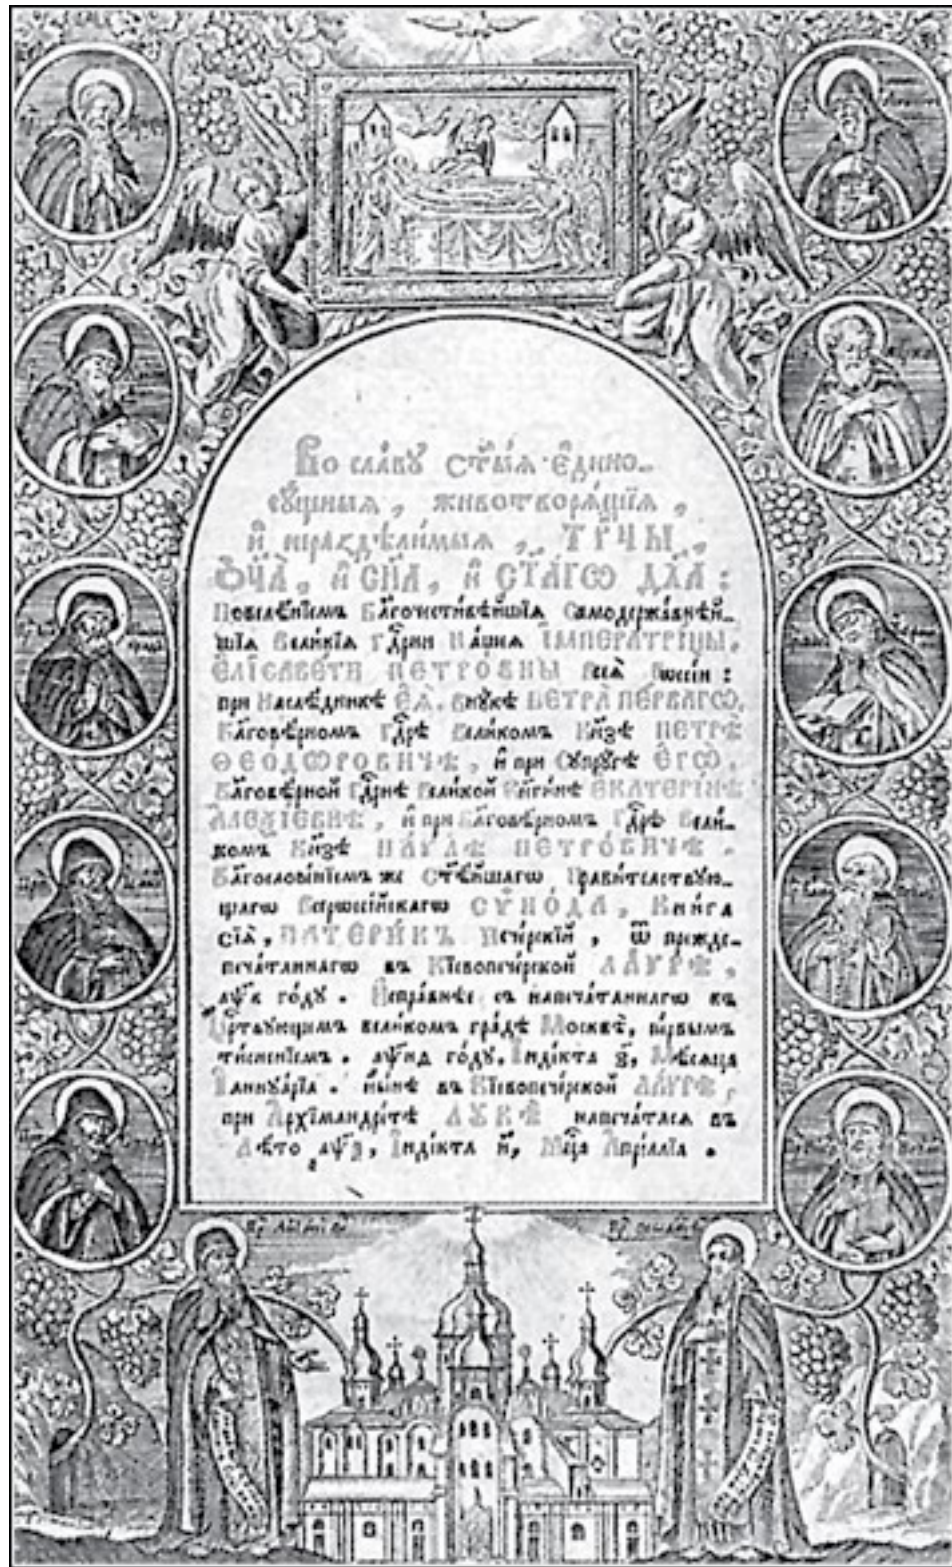 Во сла́вꙋ ст҃ы́ѧ є҆дино-
сꙋ́щныѧ, животворѧ́щїѧ,
и҆ нераздѣли́мыѧ, ТРⷪ҇ЦЫ,
Ѻ҆Ц҃А̀, и҆ СН҃А, и҆ СТ҃А́ГѠ ДХ҃А:
Повелѣ́нїемъ Бл҃гочести́вѣйшїѧ Самодержа́внѣй-
шїѧ Вели́кїѧ Гдⷭ҇рни На́шеѧ І҆МПЕРАТРИ́ЦЫ,
Є҆ЛІСАВЕ́ТЫ ПЕТРО́ВНЫ Всеѧ̀ Рѡссі́и:
при Наслѣ́дникѣ Є҆Ѧ̀, Внꙋ́кѣ ПЕТРА̀ ПЕ́РВАГѠ,
Бл҃говѣ́рномъ Гдⷭ҇рѣ Вели́комъ Кнѧ́зѣ ПЕТРѢ̀
ѲЕО́ДѠРОВИЧѢ, и҆ при Сꙋпрꙋ́гѣ Є҆ГѠ̀,
Бл҃говѣ́рной Гдⷭ҇рнѣ Вели́кой Кнѧги́нѣ ЕКАТЕРІ́НѢ
А҆ЛЕѮІ́ЕВНѢ, и҆ при Бл҃говѣ́рномъ Гдⷭ҇рѣ Вели́-
комъ Кнѧ́зѣ ПА́ѴЛѢ ПЕТРО́ВИЧѢ.
Бл҃гослове́нїемъ же Ст҃ѣ́йшагѡ Прави́телствꙋю-
щагѡ Всерѡссі́йскагѡ СѴНО́ДА, Кни́га
сїѧ̀, ПАТЕРИ́КЪ Пече́рскїй, ѿ прежде-
печа́таннагѡ въ Кі́евопече́рской ЛА́ѴРѢ,
҂аѱ҃в го́дꙋ. Исправнѣе съ напеча́таннагѡ въ
Црⷭ҇твꙋющемъ вели́комъ гра́дѣ Москвѣ̀, пе́рвымъ
тисне́нїемъ. ҂аѱн҃д го́дꙋ, І҆ндї́кта з҃, Мѣ́сѧца
І҆аннꙋа́рїа. ны́нѣ въ Кі́евопече́рской ЛА́ѴРѢ,
при А҆рхїмандрі́тѣ ЛꙊКѢ̀ напеча́тасѧ въ
Лѣ́то ҂аѱѯ҃, І҆ндї́кта и҃, Мцⷭ҇а А҆прі́ллїа.